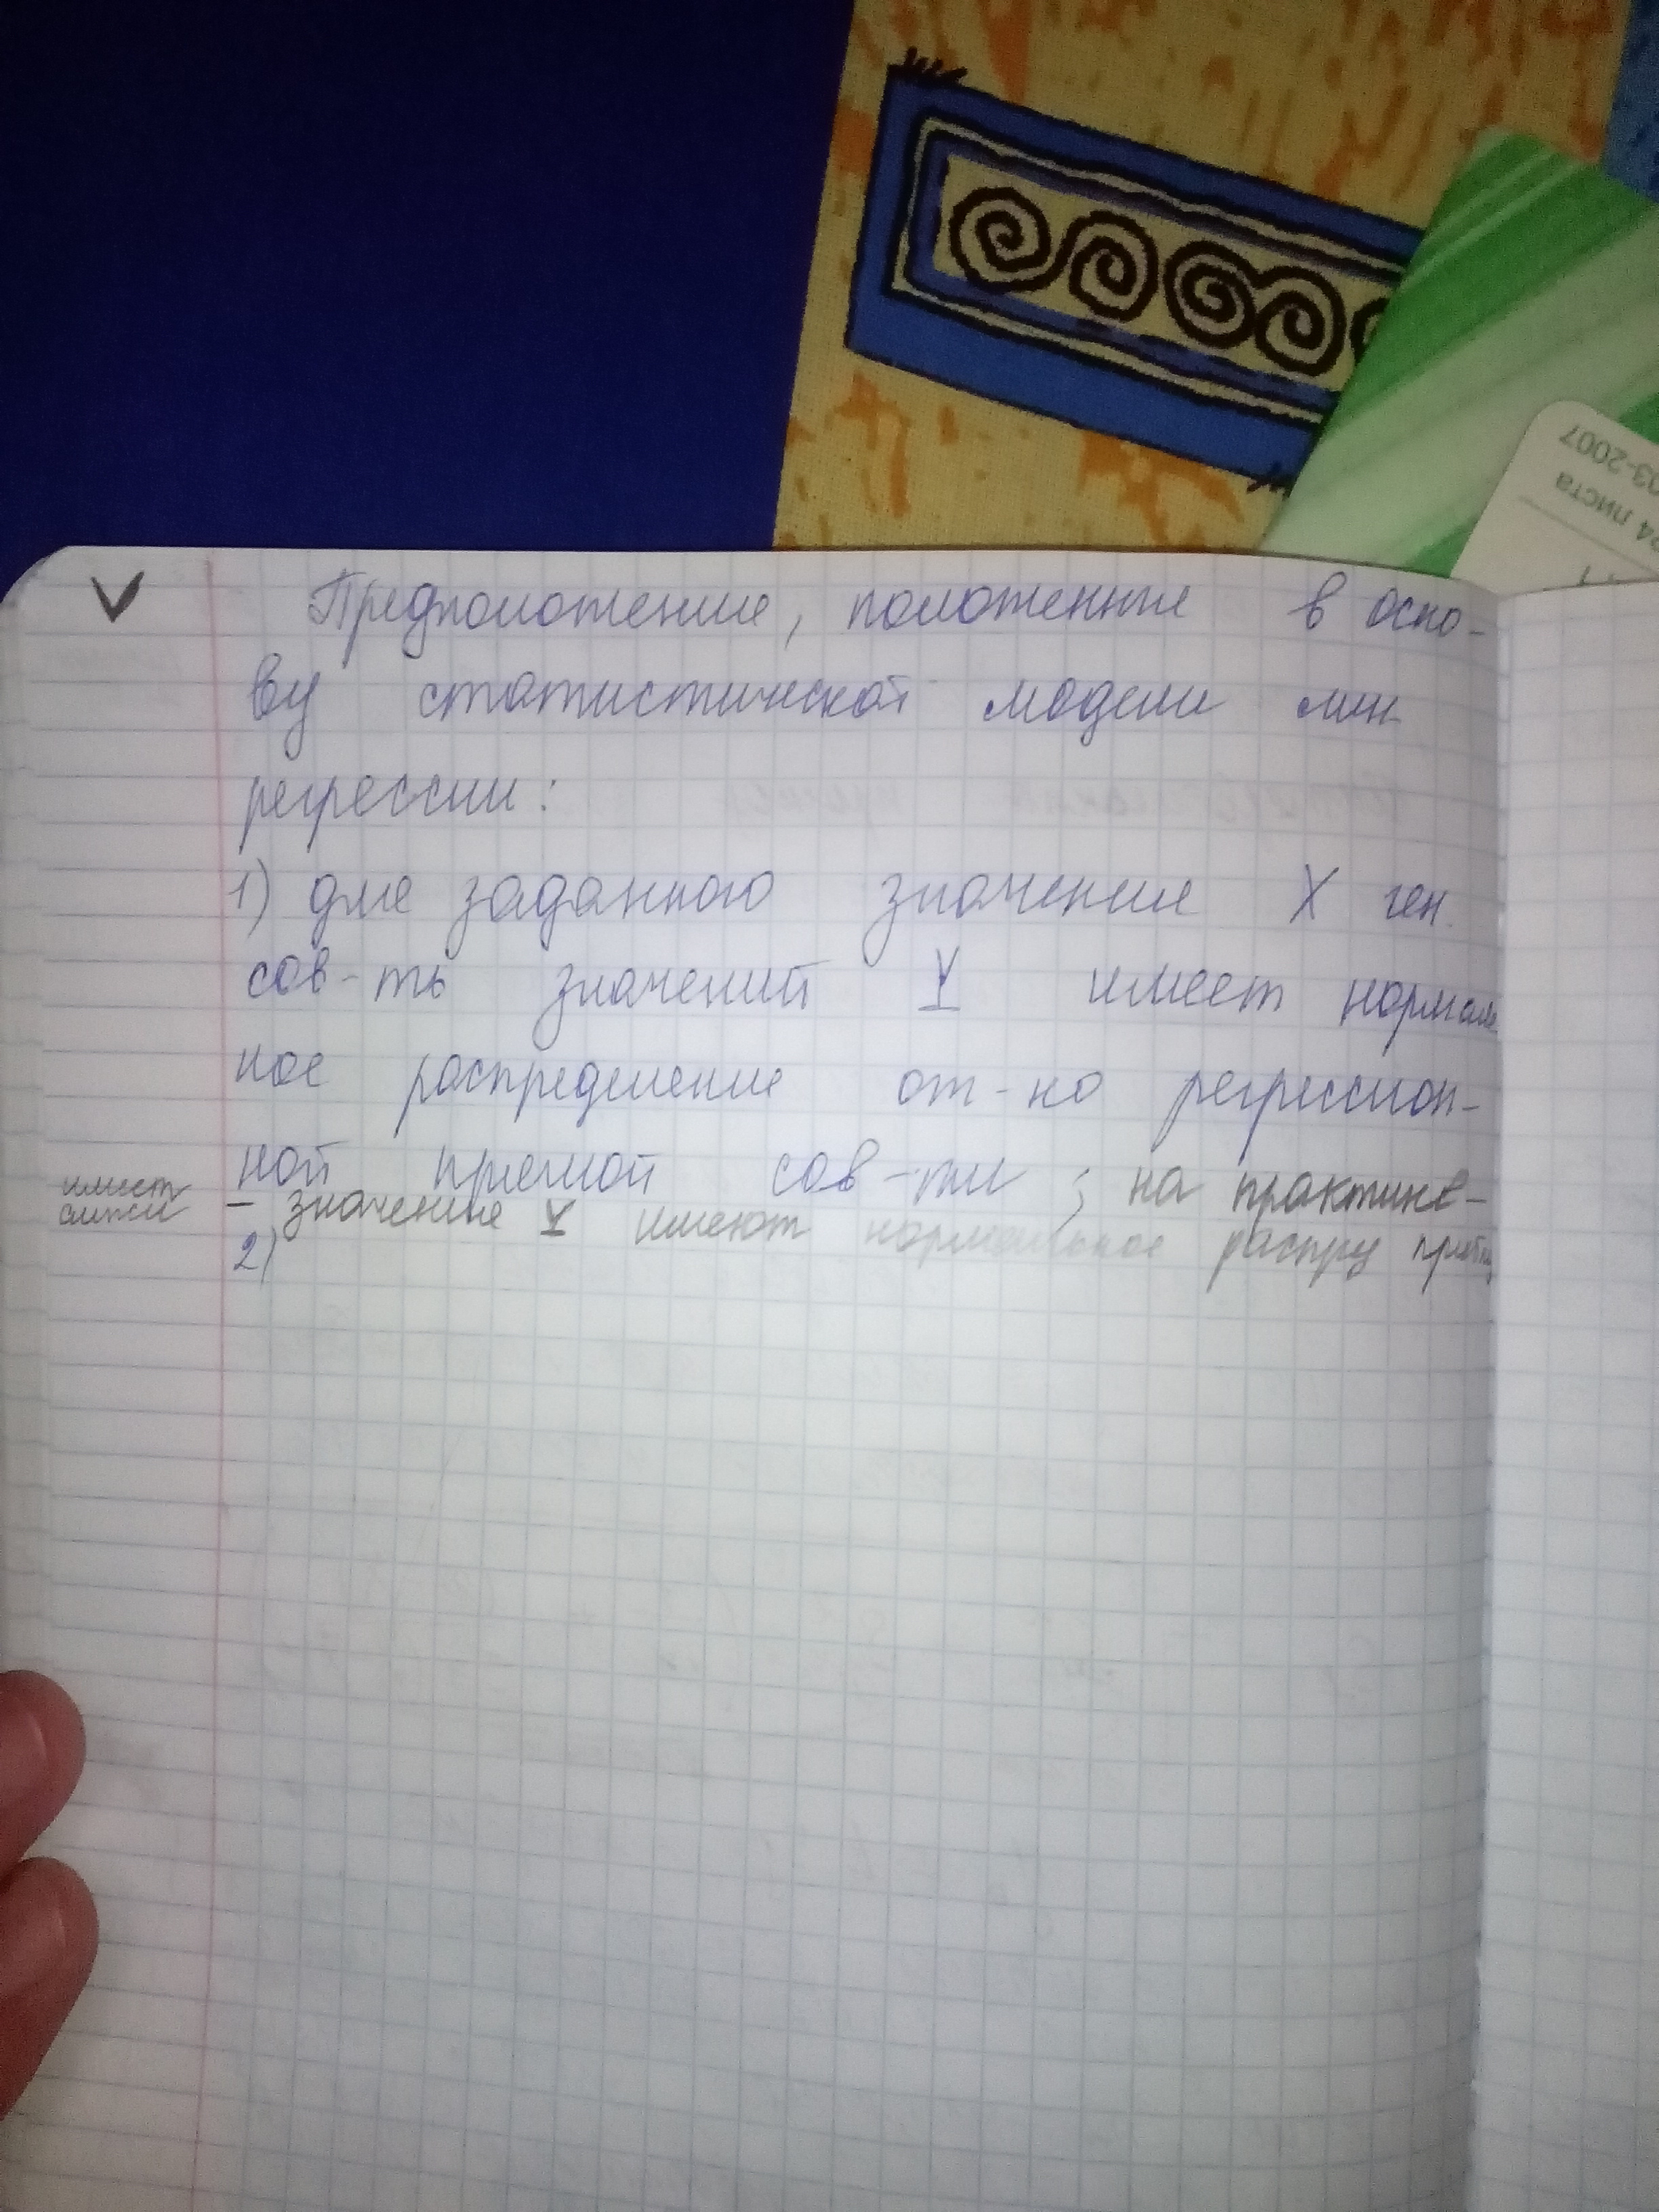 03-2007
24 листа
Предположения, положенные в осно-
ву статистической модели лин
регрессии:
1) для заданного значения X ген.
сов-ть значений Y имеет нормаль
ное распределение от-но регрессион-
ной прямой сов-ти ; на практике-
имеет
- значения Y имеют нормальное распр
2)